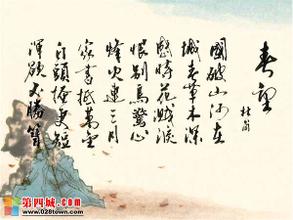 春望
杜甫
國破山河在
城春草木深
感時花濺淚
恨別鳥驚心
烽火連三月
家書抵萬金
白頭搔更短
渾欲不勝簪
第四城.com
www.028town.com